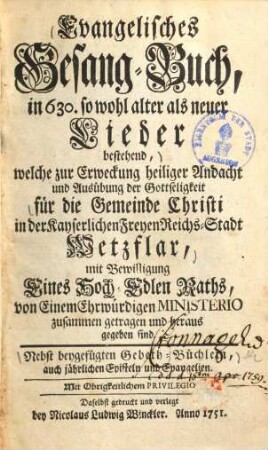 Evangelisches
Gesang-Buch,
in 630. so wohl alter als neuer
Lieder
bestehend,
welche zur Erweckung heiliger Andacht
und Ausübung der Gottseligkeit
für die Gemeinde Christi
in der Kayserlichen Freyen Reichs-Stadt
Wetzflar,
mit Bewilligung
Eines Hoch-Edlen Raths,
von Einem Ehrwürdigen MINISTERIO
zusammen getragen und heraus
gegeben sind
Nebst beygefügten Gebeth-Büchlein,
auch jährlichen Episteln und Evangelien.
Mit Obrigkeitlichem PRIVILEGIO
Daselbst gedruckt und verlegt
bey Nicolaus Ludwig Winckler. Anno 1751.